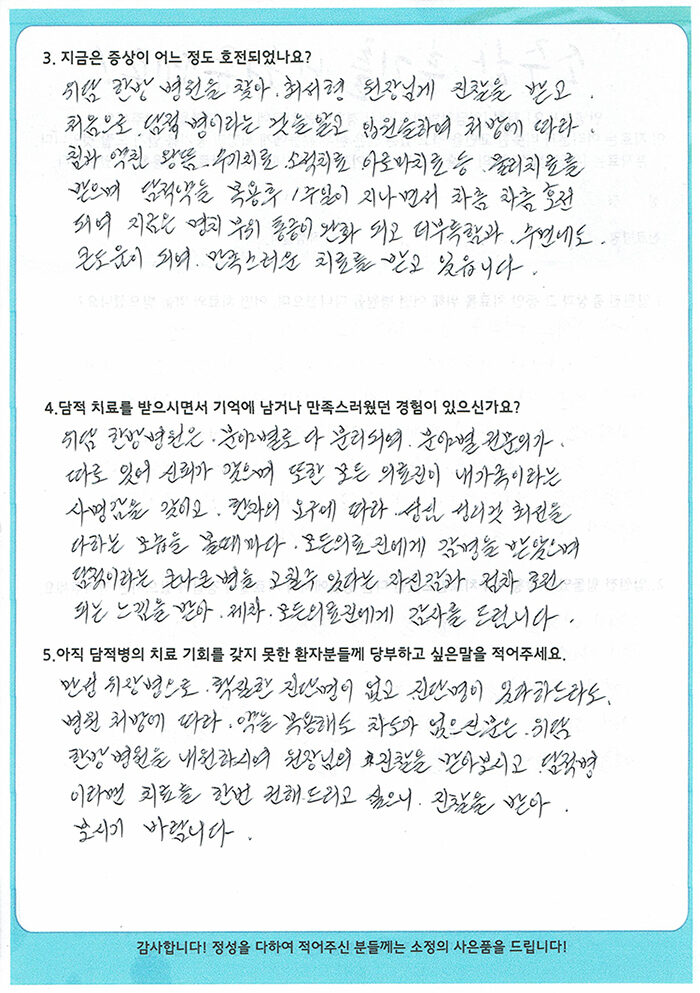 3. 지금은 증상이 어느 정도 호전되었나요?
위담 한방 병원을 찾아. 최서형 원장님게 진찰을 받고.
처음으로. 담적 병이라는 것을 알고 입원을하여 처방에 따라.
침과 약침 왕뜸. 수기치료 소적치료. 아로마치료 등. 물리치료를
받으며 담적약을 복용후 1주일이 지나면서 차츰 차츰 호전
되여 지금은 명치 부위 통증이 완화 되고 더부룩함과. 수면에도.
큰도움이 되여. 만족스러운 치료를 받고 있읍니다.
4.담적 치료를 받으시면서 기억에 남거나 만족스러웠던 경험이 있으신가요?
위담 한방병원은. 분야별로 다 분리되여. 분야별 전문의가.
따로 있어 신뢰가 갔으며 또한 모든 의료진이 내가족이라는
사명감을 갖이고. 환자의 요구에 따라. 성심 성의것 최선을
다하는 모습을 볼때마다. 모든의료진에게 감명을 받았으며
담적이라는 크나큰병을 고칠수 있다는 자신감과 점차 호전
되는 느낌을 받아. 제차. 모든의료진에게 감사를 드립니다.
5.아직 담적병의 치료 기회를 갖지 못한 환자분들께 당부하고 싶은말을 적어주세요.
만성 위장병으로. 확실한 진단명이 없고 진단명이 있다하드라도.
병원 처방에 따라. 약을 복용해도 차도가 없으신분은. 위담
한방 병원을 내원하시여 원장님의 진찰을 받아보시고 담적병
이라면 치료를 한번 권해드리고 싶으니. 진찰을 받아.
보시기 바랍니다.
감사합니다! 정성을 다하여 적어주신 분들께는 소정의 사은품을 드립니다!